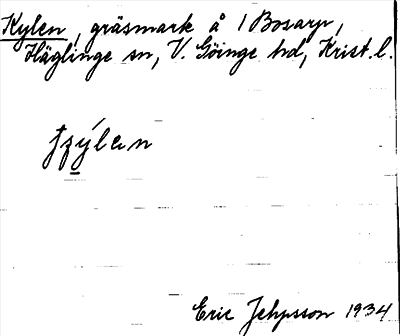 Kylen, gräsmark å 1 Bosarp,
Häglinge sn, V. Göinge hd, Krist. l.
Eric Jehpsson 1934